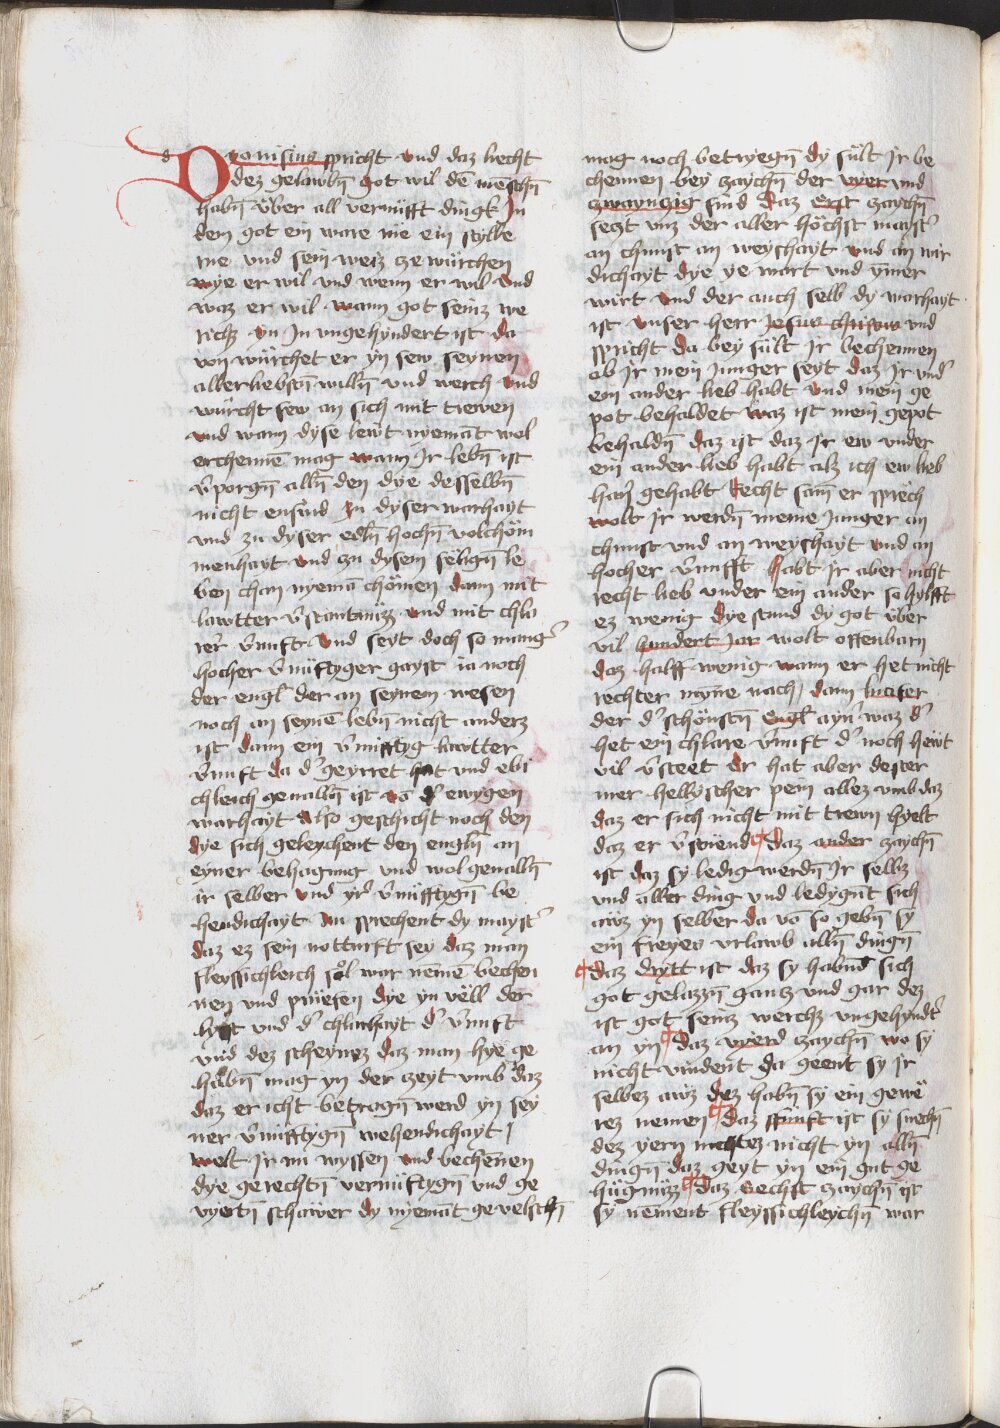 Dyonisius spricht vnd daz liecht
dez gelawbñ got wil dē mēschñ
habñ vber all vernüfft dingk Jn
dem got ein ware nie ein stylle
nie vnd sein weiz ze würchen
wye er wil vnd wenn er wil vnd
waz er wil wann got seinz we
richz yn Jn vngehyndert ist da
von würchet er yn sew seynen
allerliebstñ willñ vnd werch vnd
würcht sew an sich mit trewen
vnd wann dyse lewt nyemāt wol
erchennē mag wann Jr lebñ ist
v̄porgñ allñ den dye desselbñ
nicht ensind Jn dyser warhayt
vnd zu dyser edlñ hochñ volchöm
menhayt vnd zu dysem seligñ le
ben chan nyemā chömen dann mit
lawtter v̄stantnüzz vnd mit chla
rer v̄nuft Vnd seyt doch so mangʾ
hocher v̄nüftyger gayst ia noch
der engl der an seynem wesen
noch an seynē lebñ nicht anderz
ist dann ein v̄nüfftyg lawtter
v̄nuft da dʾ geyrret hat vnd ebi
chleich geuallñ ist vō dʾ ewygen
warhayt Also geschicht noch den
dye sich geleychent den englñ an
eyner behagung vnd wolgeuallñ
ir selber vnd yrʾ v̄nüfftygñ be
hendichayt Nu sprechent dy maystʾ
daz ez sein notturft sey daz man
fleyssichleich sol war nemē bechen
nen vnd prüefen dye yn vell der
lyst vnd dʾ chlarhayt dʾ v̄nuft
vnd dez scheynez daz man hye ge
habñ mag yn der zeyt vmb daz
daz er icht betrogñ werd yn sey
ner v̄nüfftygñ wehendichayt /
Welt Jr nu wyssen vnd bechēnen
dye gerechtñ vernüftygñ vnd ge
vyertñ schawer dy nyemāt geuelschñ
mag noch betryegñ dy sült Jr be
chennen bey zaychñ der vyer vnd
zwaynczig sind Daz Erst zaychñ
seczt vnz der aller höchst maystʾ
an chunst an weyshayt vnd an wir
dichayt dye ye wart vnd ymer
wirt vnd der auch selb dy warhayt
ist vnser herr Jesus christus vnd
spricht da bey sült Jr bechennen
ob Jr mein Junger seyt daz Jr vndʾ
ein ander lieb habt vnd mein ge
pot behaldet Waz ist mein gepot
behaldñ daz ist daz Jr ew vnder
ein ander lieb habt alz ich ew lieb
han gehabt Recht sam er spräch
wolt Jr werdñ meine Junger an
chunst vnd an weyshayt vnd an
hocher v̄nufft Habt Jr aber nicht
recht lieb vnder ein ander so hylfft
ez wenig dye stund dy got vber
vil hundert Jar wolt offenbarn
daz halff wenig wann er het nicht
rechter mynne nach / dann lucifer
der dʾ schönstñ Engl aynʾ waz dʾ
het ein chlare v̄nuft dʾ noch hewt
vil v̄steet Er hat aber dester
mer hellyscher pein allez vmb daz
daz er sich nicht mit trewn hyelt
daz er v̄stuend ¶ Daz ander zaychñ
ist daz sy ledig werdñ Jr selbz
vnd aller ding vnd ledygñt sich
awz yn selber da vō so gebñ sy
ein freyes vrlawb allñ dingñ
¶ Daz drytt ist daz sy habnd sich
got gelazzñ gancz vnd gar dez
ist got seinz werchz vngehyndtʾ
an yn ¶ Daz vyerd zaychñ wo sy
nicht vindent da geent sy Jr
selbez awz dez habñ sy ein gewë
rez nemen ¶ Daz ffünft ist sy suechñ
dez yern nichtez nicht yn allñ
dingñ daz geyt yn ein gut ge
hügnüzz ¶ Daz Sechst zaychñ ist
sy nement fleyssichleychñ war